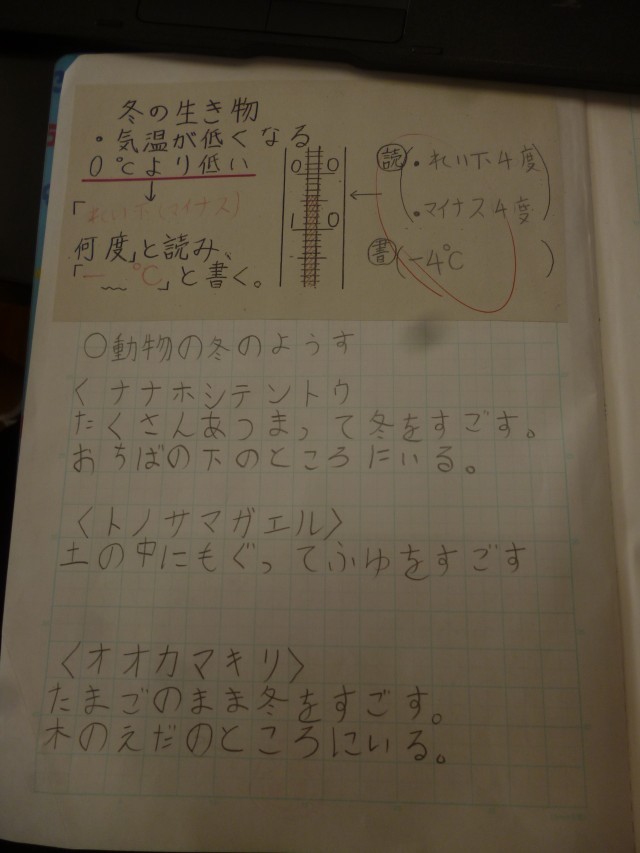 冬の生き物
・気温が低くなる
0℃より低い
↓
「れい下(マイナス)
何度」と読み、
「－ ℃」と書く。
0 0
1 0
←
読(・れい下4度
・マイナス4度)
書(－4℃ )
○動物の冬のようす
くナナホシテントウ
たくさんあつまって冬をすごす。
おちばの下のところにいる。
〈トノサマガエル〉
土の中にもぐってふゆをすごす
〈オオカマキリ〉
たまごのまま冬をすごす。
木のえだのところにいる。